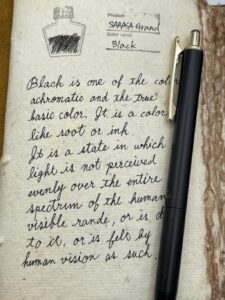 Product
SARASA Grand
Color name
Black
Black is one of the color
achromatic and the true
basic color. It is a color
like soot or ink
It is a state in which
light is not perceived
evenly over the entire
spectrum of the human
visible rande, or is d
to it, or is felt by
human vision as such.